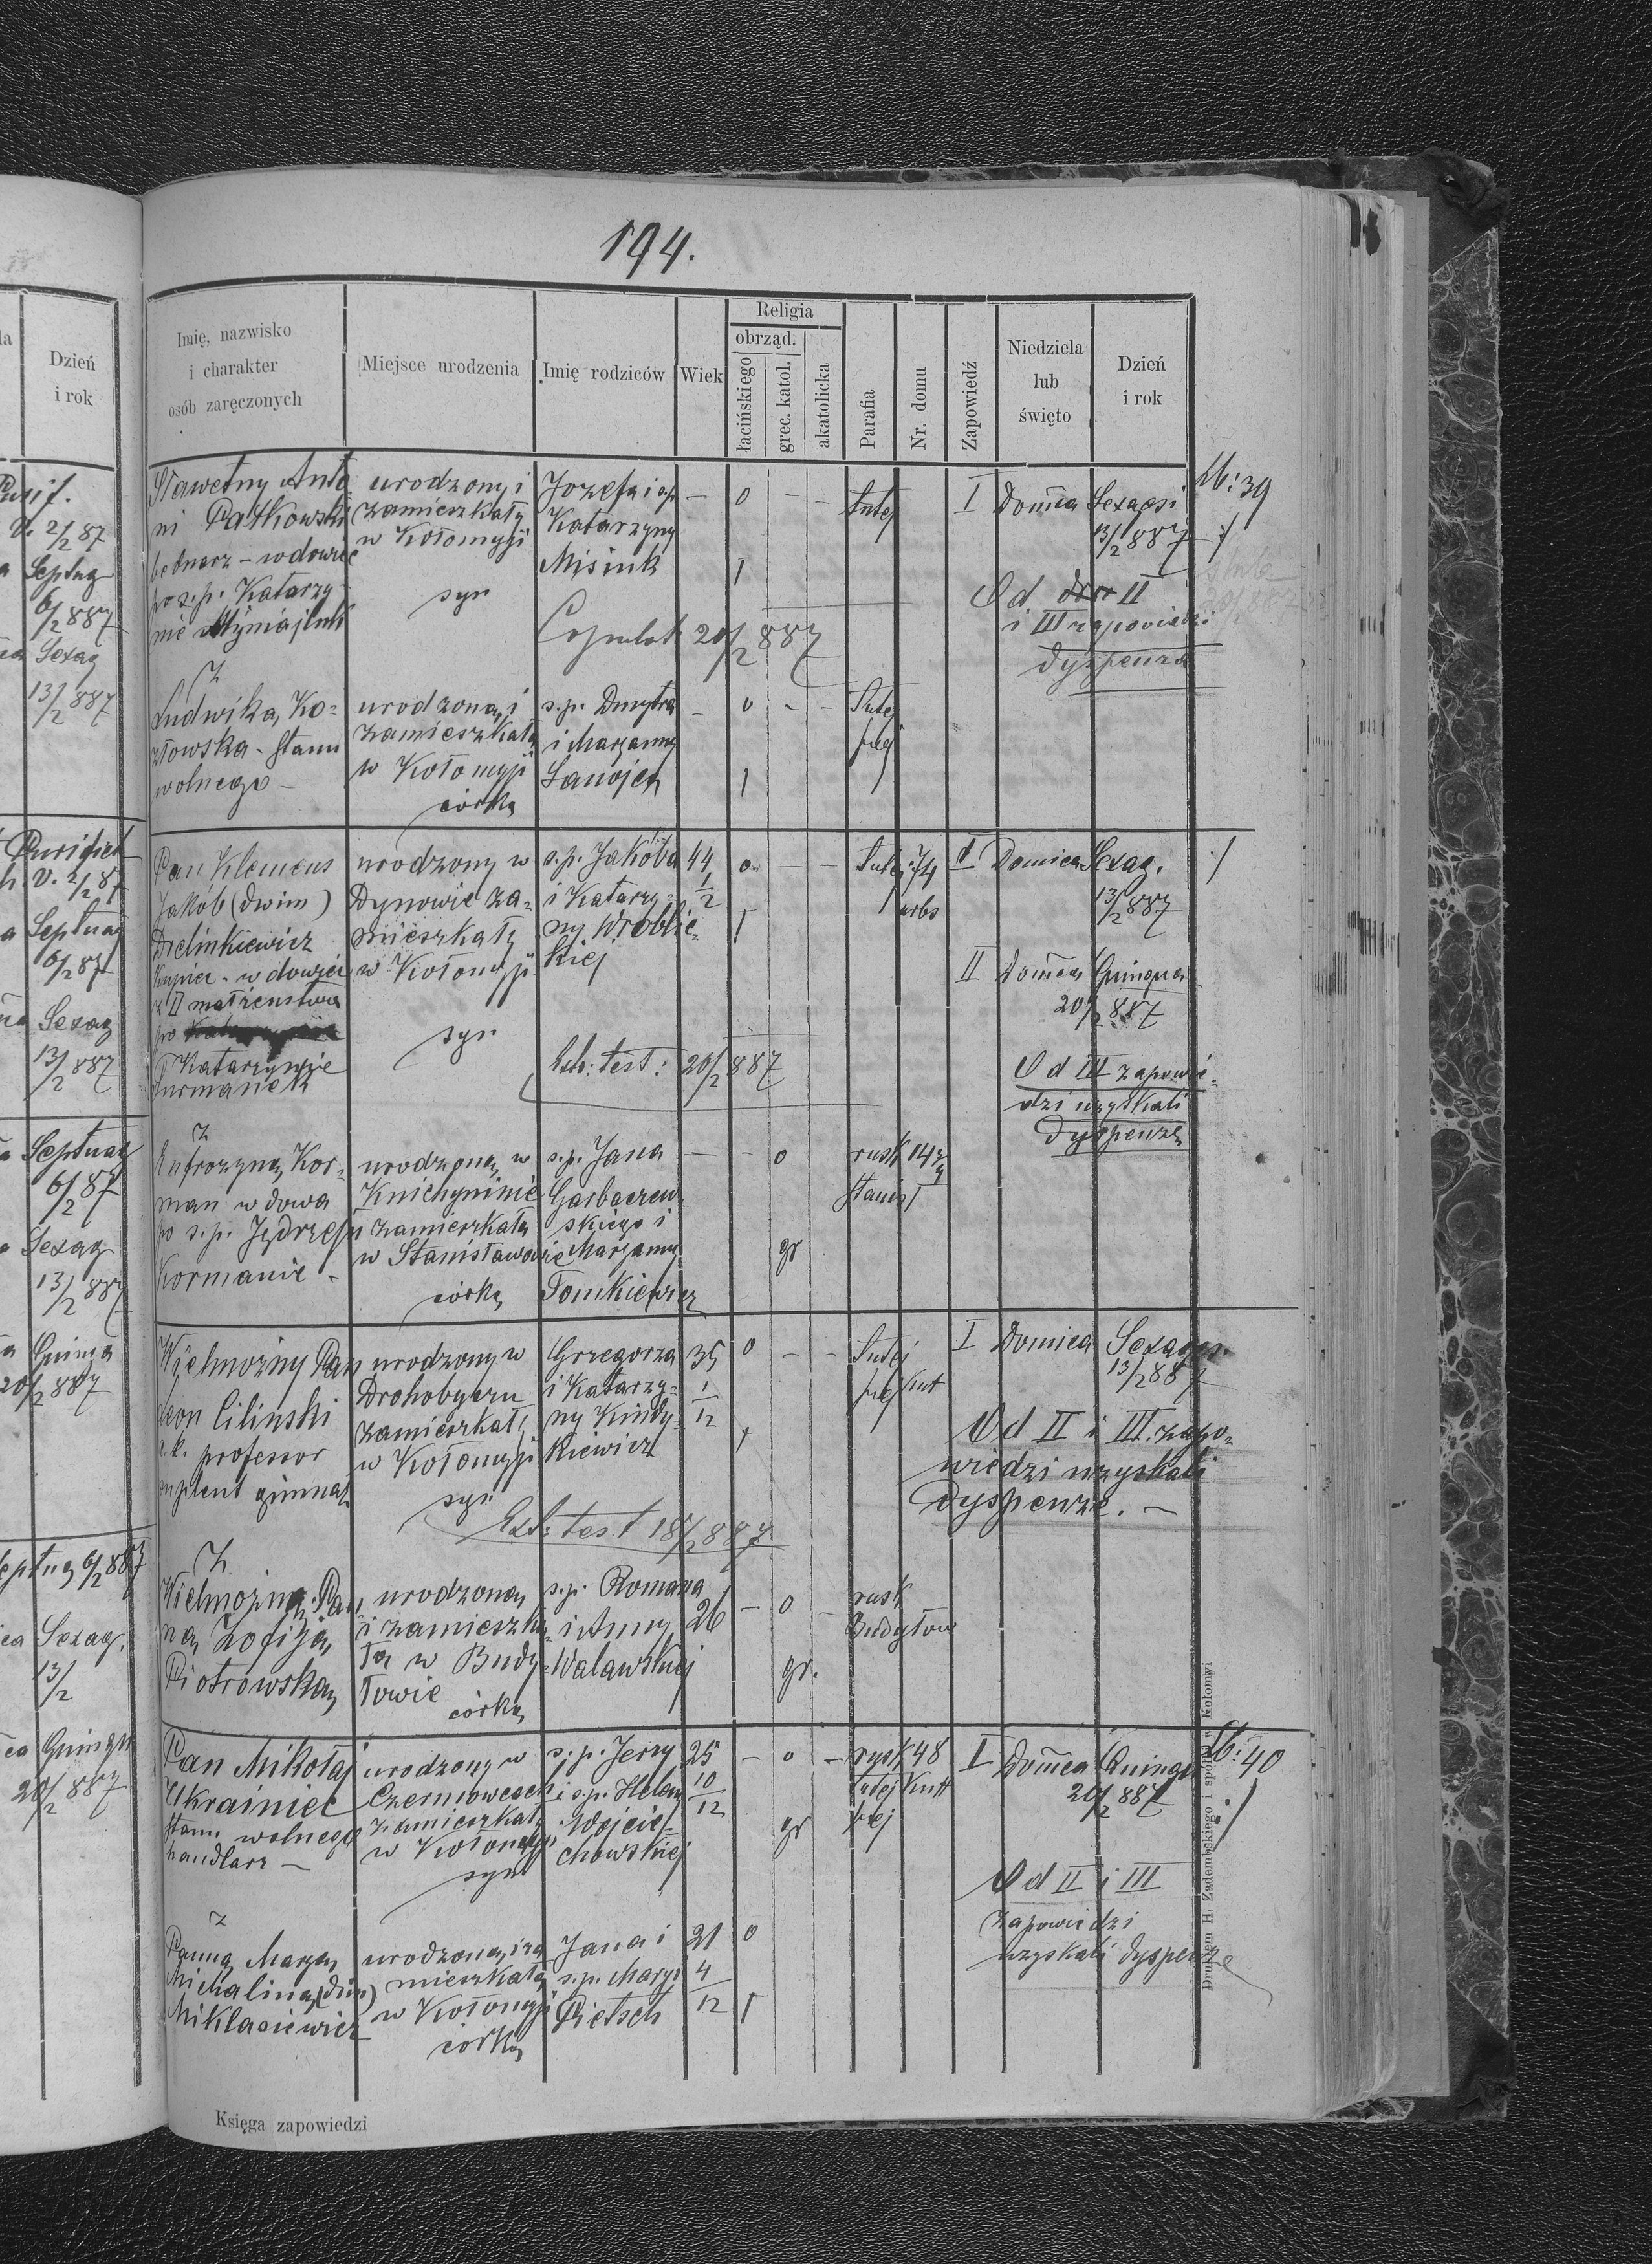 194.
Imię, nazwisko
i charakter
osób zaręczonych
Miejsce urodzenia
Imię rodziców
Wiek
Religia
obrząd.
łacińskiego
grec. katol.
akatolicka
Parafia
Nr. domu
Zapowiedź
Niedziela
lub
święto
Dzień
i rok
Sławetny Anto
ni Patkowski
bednarz - wdowiec
po ś.p. Katarzy
nie
urodzony i
zamieszkały
w Kołomyji
syn
Józefa i śp.
Katarzyny
Misiuk
— 0 - -
Tutej
I Domca Sexagsi
13/2 887
Lb: 39
Od II
i III zapowiedzi
dyspenza
20/2 887
z
Ludwika Ko=
złowska - stanu
wolnego -
urodzona i
zamieszkała
w Kołomyji
córka
s.p. Dmytra
i Maryanny
- 0 - -
Tutej
Pan Klemens
Jakób (dwim)
Dzelinkiewicz
Kupiec - wdowiec
z II małżeństwa
po
Katarzynie
Furmanek
urodzony w
Dynowie za=
mieszkały
w Kołomyji
syn
s.p. Jakóba
i Katarzy=
ny Wróblic=
kiej
44
1/2
0 - -
Tutej 74
urbs
I Domica Sexag.
13/2 887
II Domca Quinqua
20/2 887
test: 20/2 887
Od III zapowie=
dzi uzyskali
dyspenzę
z
Eufrozyna Kor=
man wdowa
po s.p. Jędrzeju
Kormanie -
urodzona w
Knichyninie
zamieszkała
w Stanisławowie
córka
s.p. Jana
Garbaczew
skiego i
Maryanny
Tomkiewicz
— - 0
gr
rusk
stanisł
Wielmożny Pan
Leon Ciliński
c.k. professor
suplent gimnaz.
urodzony w
Drohobyczu
zamieszkały
w Kołomyji
syn
Grzegorza
i Katarzy=
ny Kindy=
kiewicz
35
1/12
0 - -
Tutej
Kut
I Domica Sexages.
13/2 887
Od II i III. zapo=
wiedzi uzyskali
dyspenzę. —
test 18/2 887
z
Wielmożna Pan
na Zofija
Piotrowska
urodzona
i zamieszka=
ła w Budy=
łowie
córka
s.p. Romana
i Anny
Walawskiej
26
- 0 -
gr.
rusk
Budyłow
Pan Mikołaj
Ukrainiec
stanu wolnego
handlarz —
urodzony w
Czerniowcach
zamieszkały
w Kołomyji
syn
s.p. Jerzy
i s.p. Heleny
Wojcie=
chowskiej
25
10/12
- 0 -
gr
rusk 48
Tutej Kutt
I Domca Quinqu
20/2 887
Lb: 40
Od II i III
zapowiedzi
uzyskali dyspenzę
z
Panna Marya
Michalina (dim)
Miklasiewicz
urodzona i za
mieszkała
w Kołomyji
córka
Jana i
s.p. Maryi
Pietsch
21
4/12
0
Drukiem H. Zadembskiego i spółki w Kołomyi
Księga zapowiedzi
Dzień
i rok
2/2 87
Septuag
6/2 887
Sexag
13/2 887
2/2 87
Septuag
6/2 87
Sexag
13/2 887
Septuag
6/2 87
Sexag
13/2 887
Quinqa
20/2 887
6/2 887
Sexag.
13/2
Quinqu
20/2 887